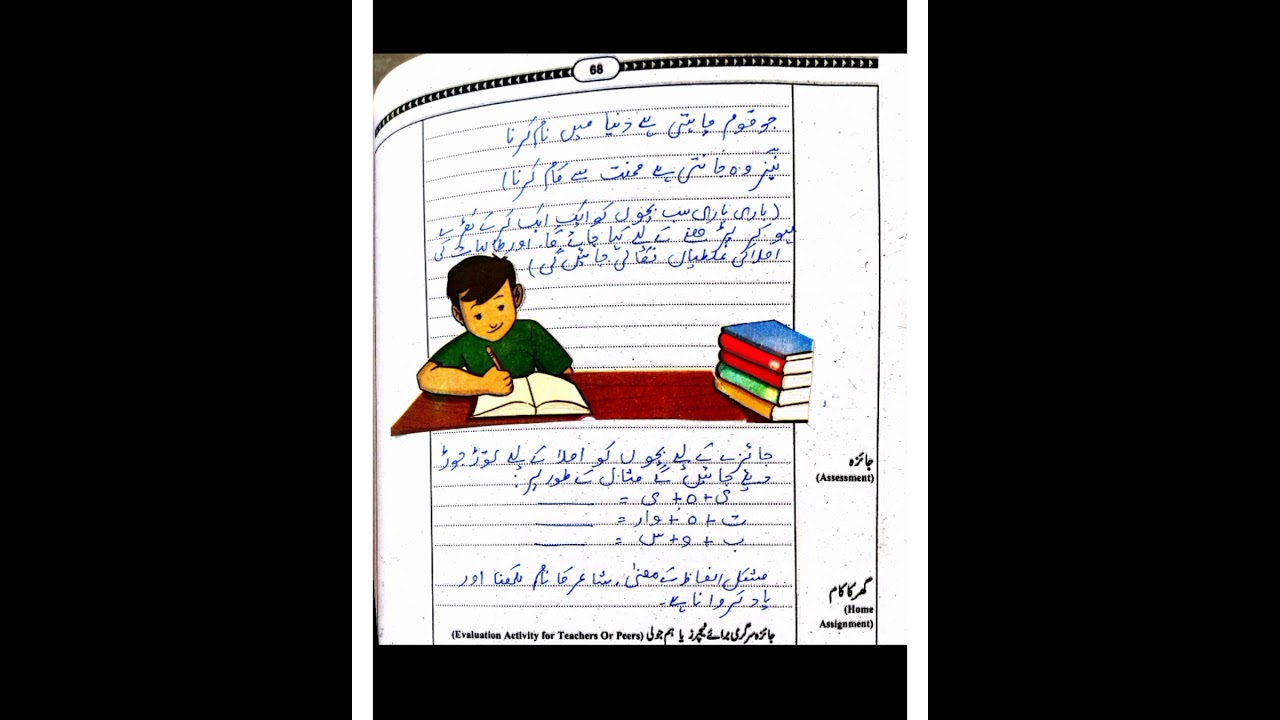 68
جو قوم چاہتی ہے دنیا میں نام کرنا
نیز وہ جانتی ہے محنت سے کام کرنا)
(باری باری سب بچوں کو ایک ایک کر کے کھڑے
ہو کر پڑھنے کے لیے کہا جائے گا۔ اور طالبات کی
املا کی غلطیاں نکالی جائیں گی)
جائزے کے لیے بچوں کو املا کے لیے توڑ جوڑ
دیئے جائیں گے مثال کے طور پر:
ی + ہ + ی = ____
ت + ہ + وار = ____
ب + و + س = ____
جائزہ
(Assessment)
مشکل الفاظ کے معنیٰ، شاعر کا نام لکھنا اور
یاد کروانا ہے۔
گھر کا کام
(Home
Assignment)
جائزہ سرگرمی برائے ٹیچرز یا ہم جولی (Evaluation Activity for Teachers Or Peers)